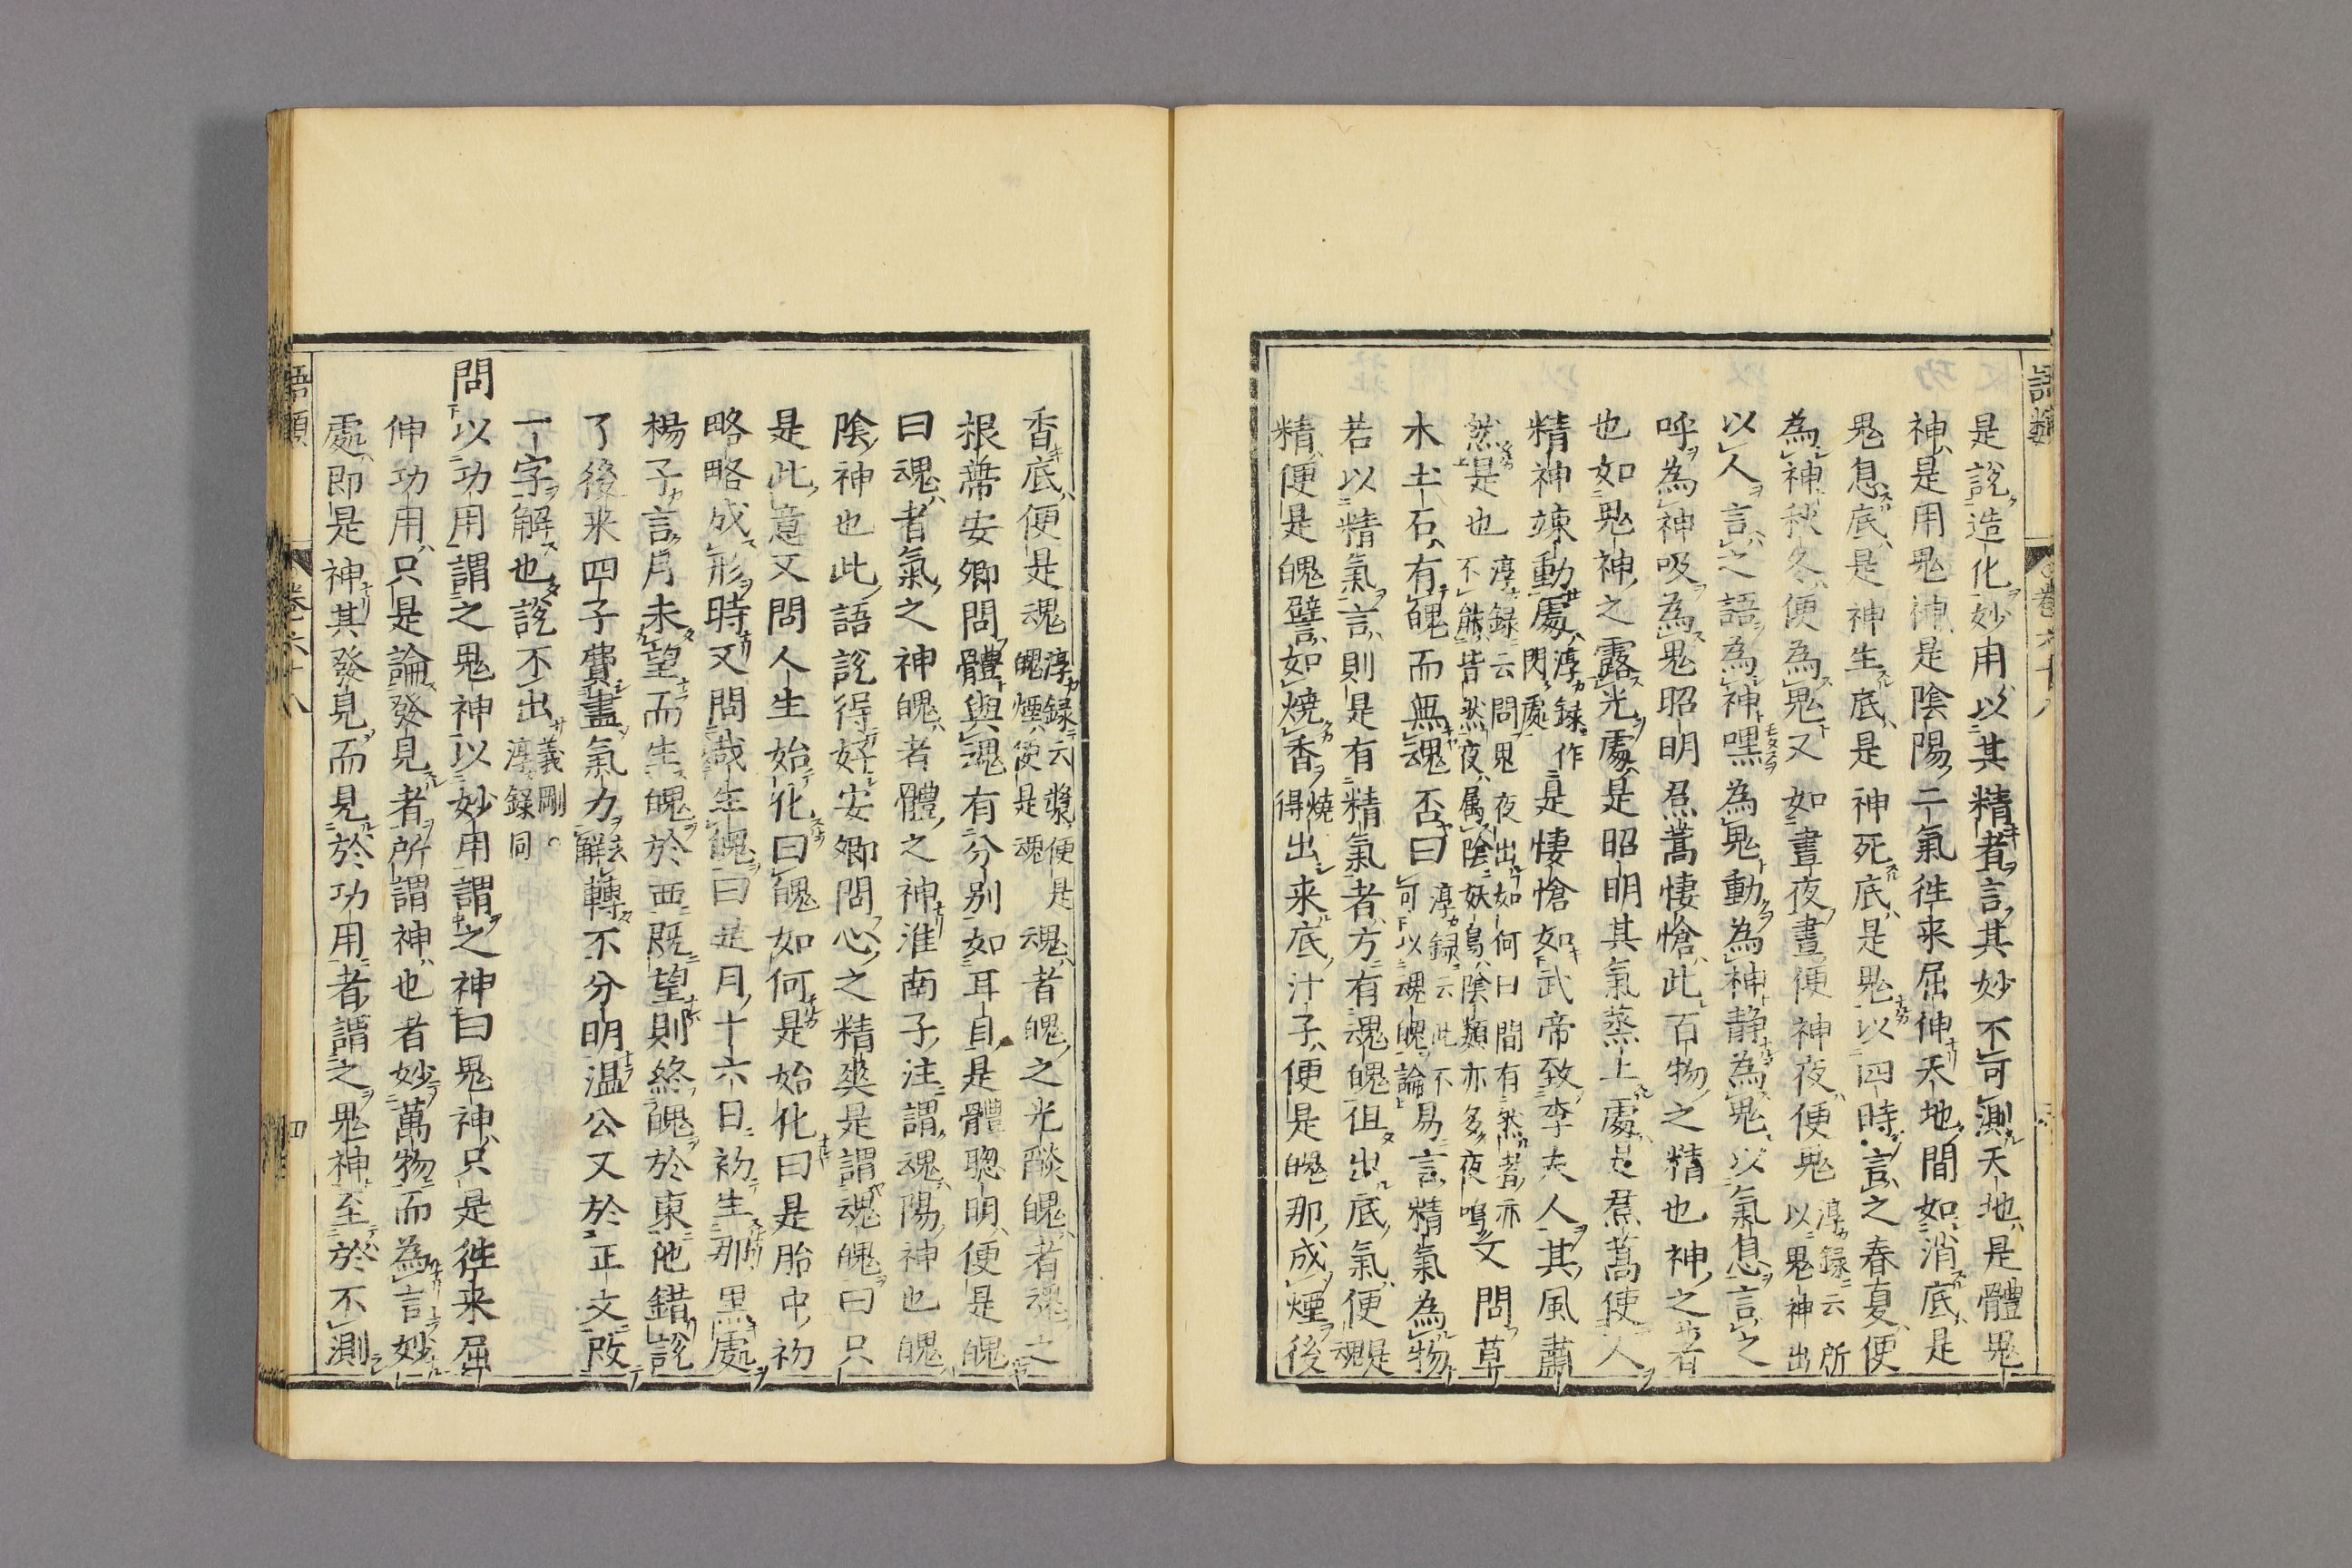 語類
卷六十八
是說造化妙用以其精者言其妙不可測天地是體鬼
神是用鬼神是陰陽二氣徃来屈伸天地間如消底是
鬼息底是神生底是神死底是鬼以四時言之春夏便
為神秋冬便為鬼又如晝夜晝便神夜便鬼淳録云所以鬼神出
以人言之語為神嘿為鬼動為神静為鬼以氣息言之
呼為神吸為鬼昭明焄蒿悽愴此百物之精也神之著
也如鬼神之露光處是昭明其氣蒸上處是焄蒿使人
精神竦動處淳録作閃處是悽愴如武帝致李夫人其風肅
然是也淳録云問鬼夜出如何曰間有然者亦不能皆然夜属陰妖鳥陰類亦多夜鳴又問草
木土石有魄而無魂否曰淳録云此不可以魂魄論易言精氣為物
若以精氣言則是有精氣者方有魂魄但出底氣便是魂
精便是魄譬如燒香燒得出来底汁子便是魄那成煙後
香底便是魂淳録云漿便是魄煙便是魂魂者魄之光燄魄者魂之
根蒂安卿問體與魂有分別如耳目是體聰明便是魄
曰魂者氣之神魄者體之神淮南子注謂魂陽神也魄
陰神也此語說得好安卿問心之精爽是謂魂魄曰只
是此意又問人生始化曰魄如何是始化曰是胎中初
略略成形時又問哉生魄曰是月十六日初生那黒處
楊子言月未望而生魄於西既望則終魄於東他錯說
了後来四子費盡氣力去解轉不分明温公又於正文改
一字解也說不出義剛。淳録同
問以功用謂之鬼神以妙用謂之神曰鬼神只是徃来屈
伸功用只是論發見者所謂神也者妙萬物而為言妙
處即是神其發見而見於功用者謂之鬼神至於不測
語類
卷六十八
四